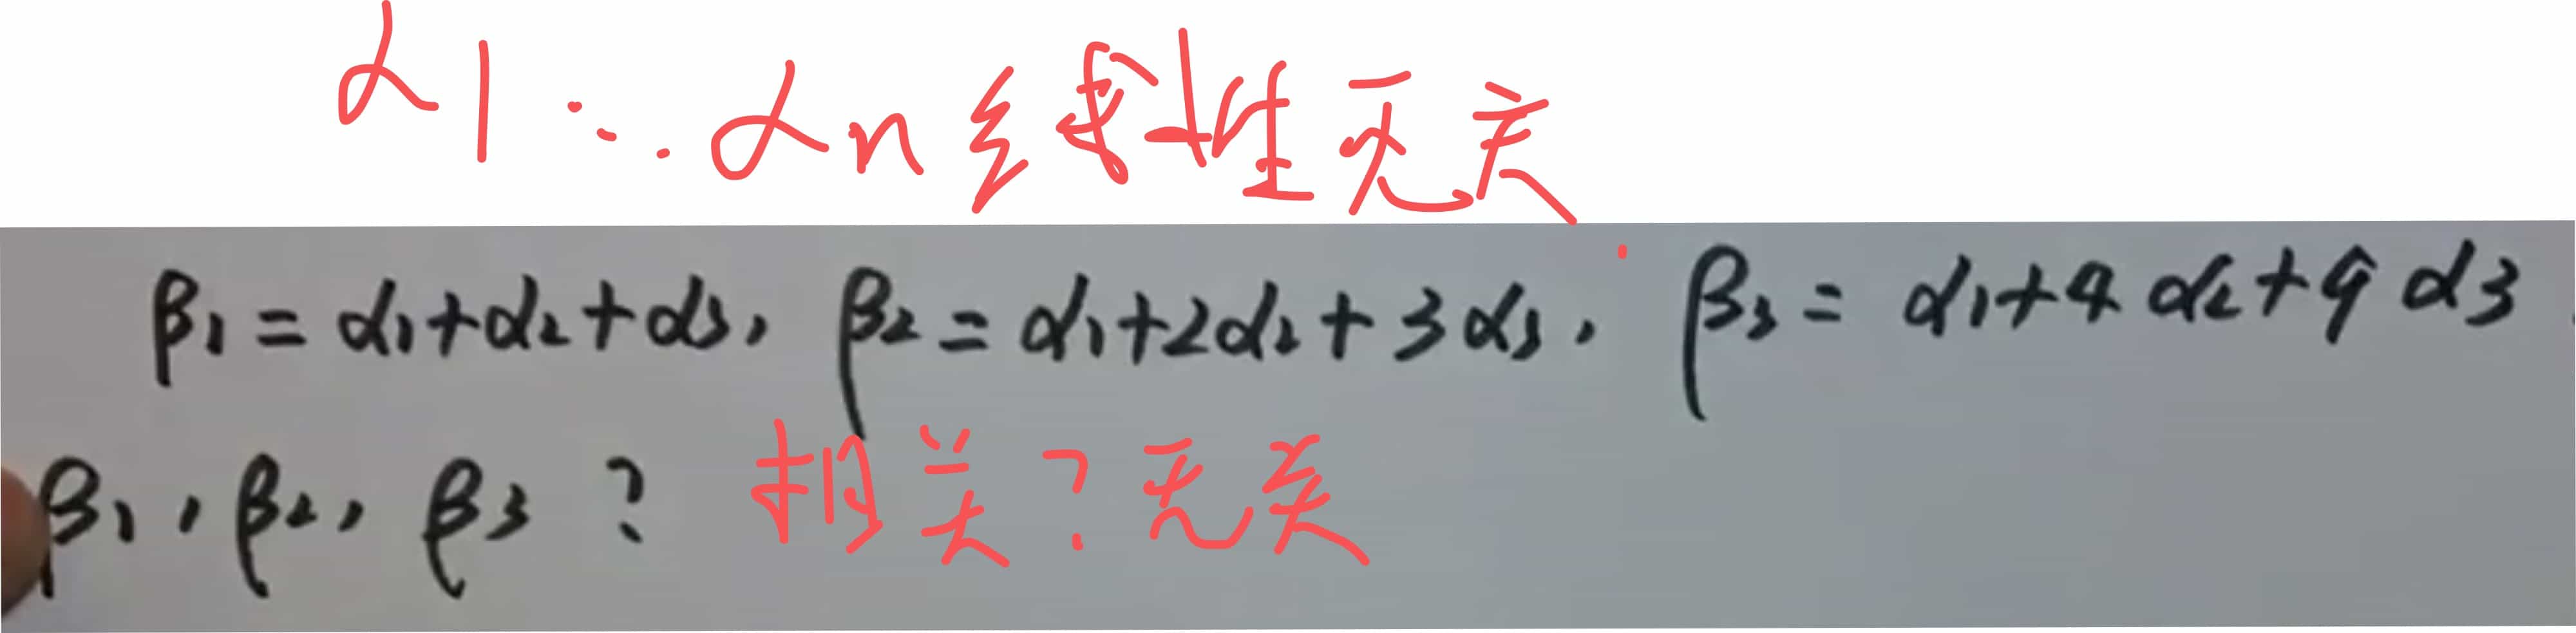 α1… αn 线性无关
β1 = α1+α2+α3, β2 = α1+2α2+3α3, β3 = α1+4α2+9α3
β1, β2, β3 ? 相关?无关